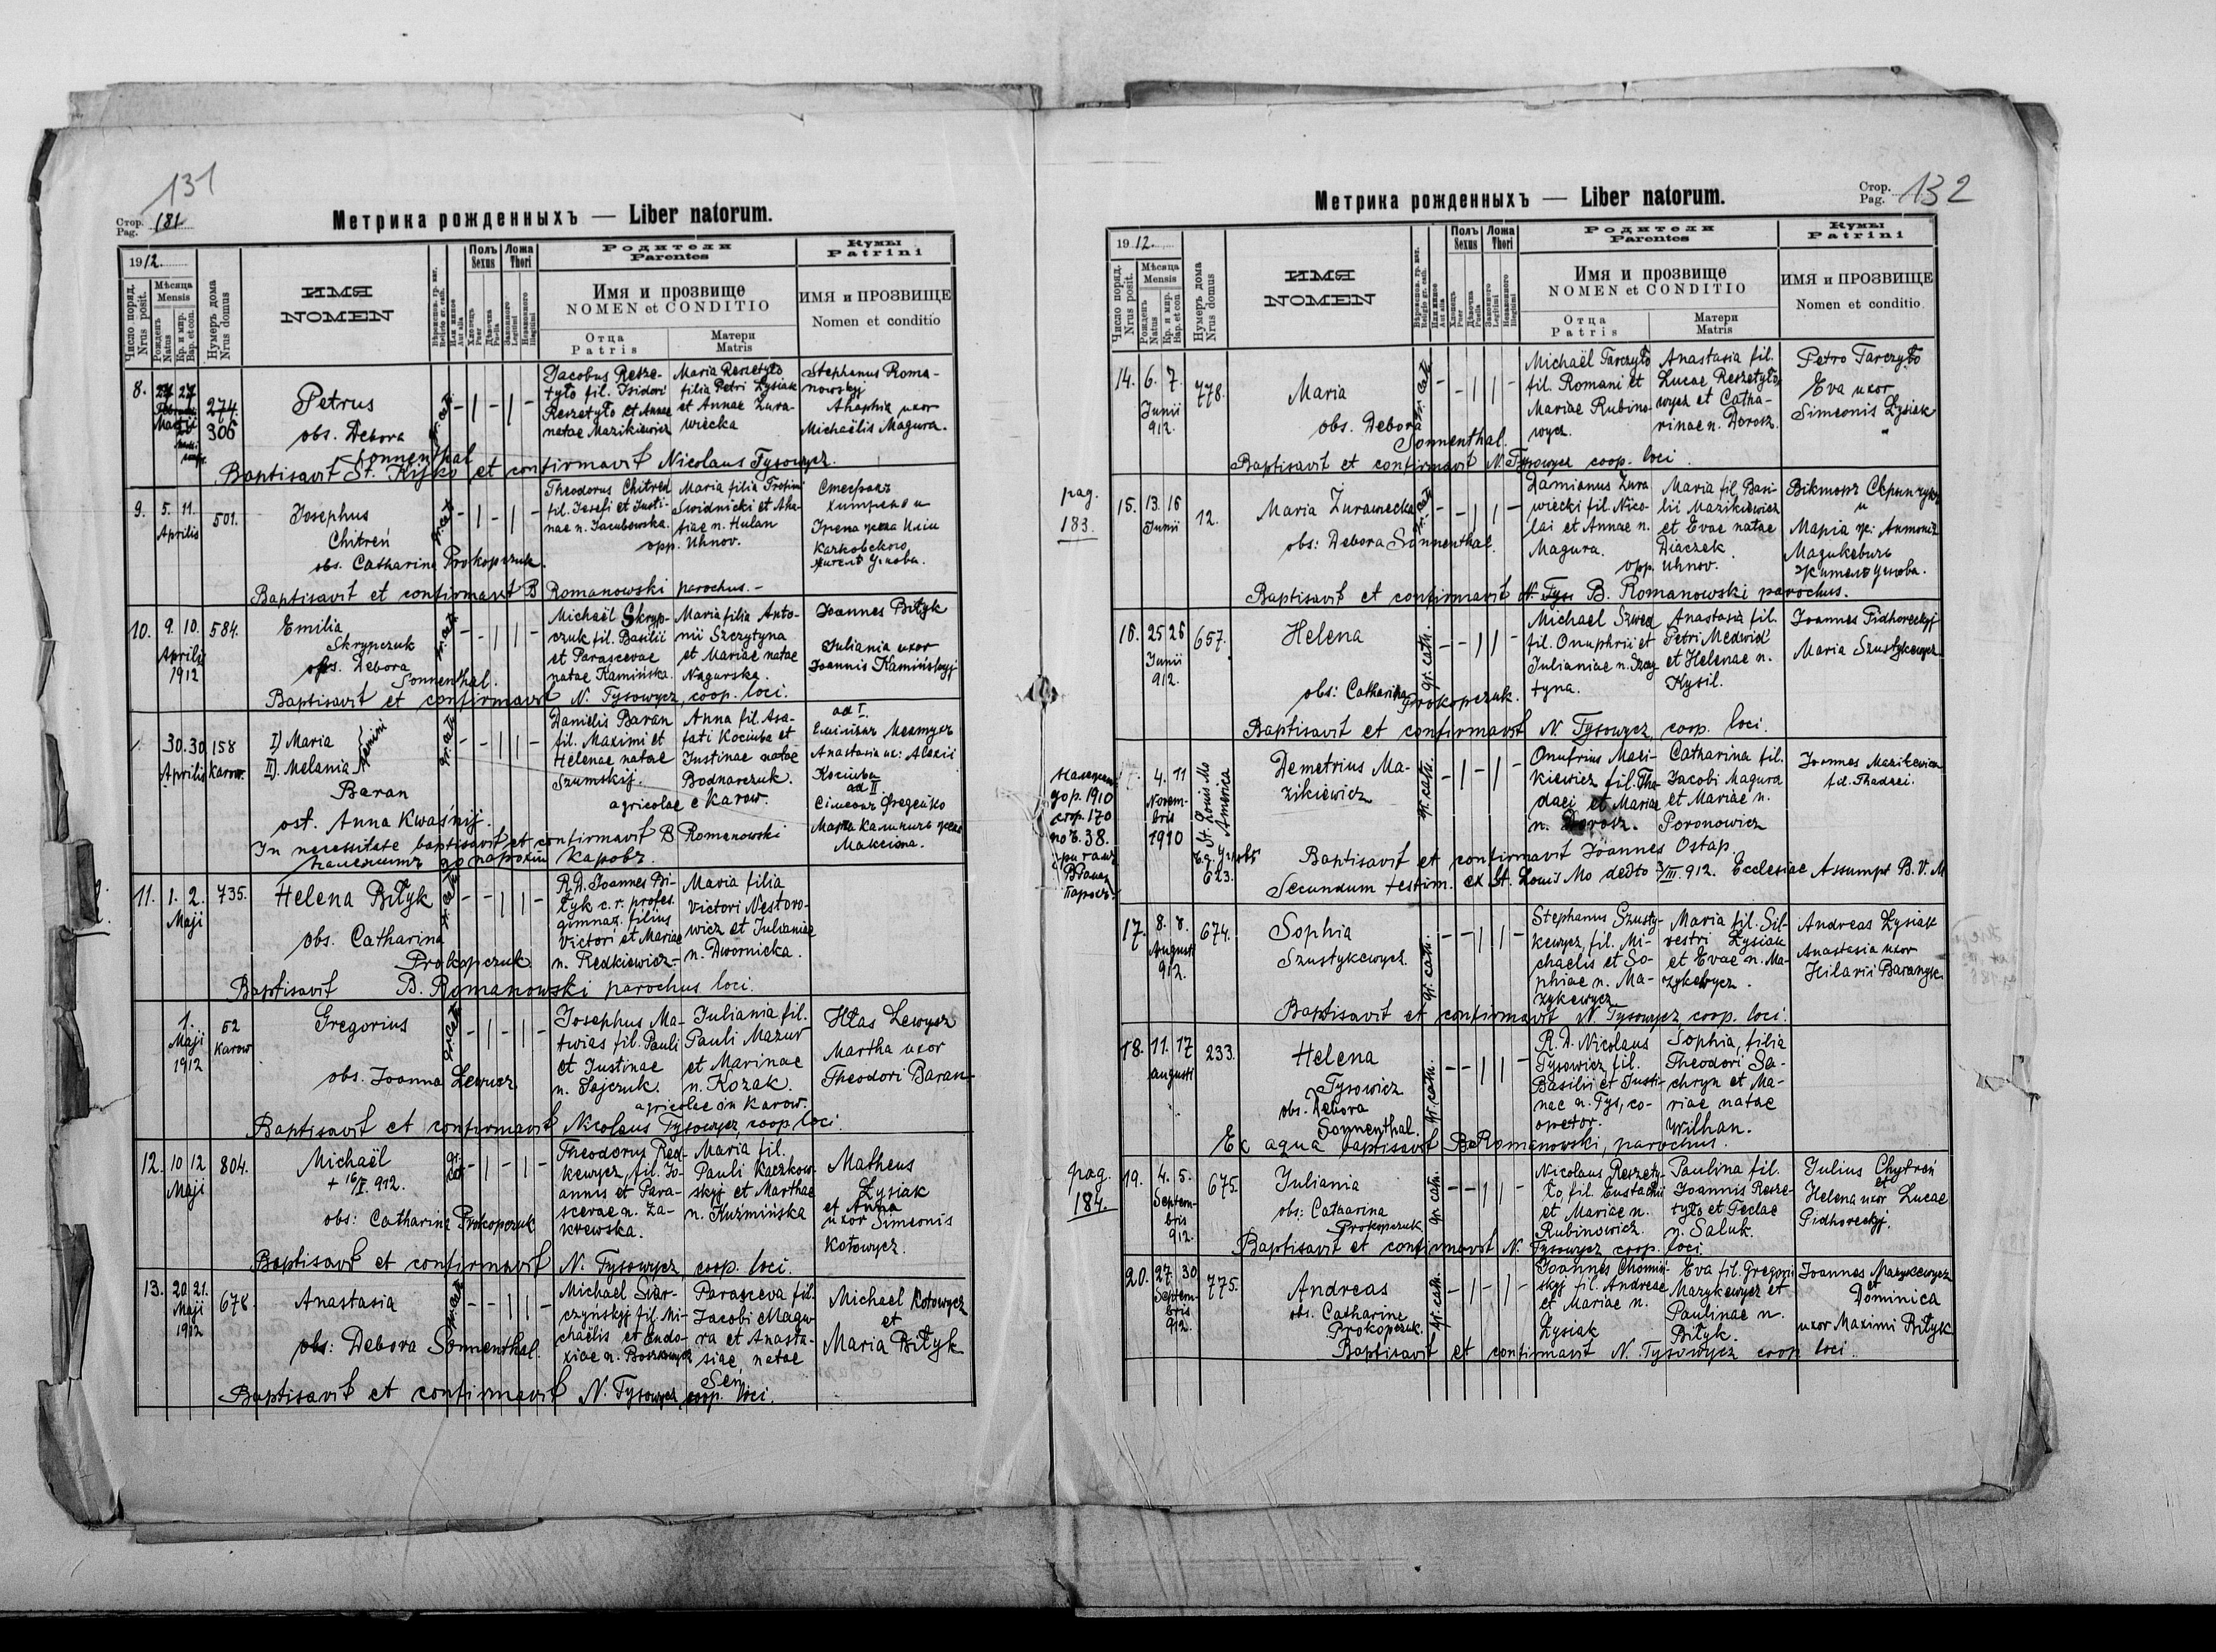 131
Стор.
Pag. 181
Метрика рожденныхъ — Liber natorum.
1912.
Число поряд.
Nrus posit.
Мѣсяца
Mensis
Рожденъ
Natus
Кр. и мир.
Bap. et con.
Нумеръ дома
Nrus domus
ИМЯ
NOMEN
Вѣроиспов. гр. кат.
Religio gr. cath.
Или инное
Aut alia
Полъ
Sexus
Хлопецъ
Puer
Дѣвочка
Puella
Ложа
Thori
Законного
Legitimi
Незаконного
Illegitimi
Родители
Parentes
Имя и прозвище
NOMEN et CONDITIO
Отца
Patris
Матери
Matris
Кумы
Patrini
ИМЯ и ПРОЗВИЩЕ
Nomen et conditio
8. 27 27
Martii
274.
306
Petrus
obs. Debora
Sonnenthal
gr. cath.
Jacobus Resze-
tyło fil. Isidori
Reszetyło et Annae
natae Mazikiewicz
Maria Reszetyło
filia Petri Łysiak
et Annae Żura-
wiecka
Stephanus Roma-
nowskyj
Ahaphia uxor
Michaëlis Magura.
Baptisavit St. Kijko et confirmavit Nicolaus Tysowycz.
9. 5. 11.
Aprilis
501.
Josephus
Chitreń
obs. Catharina Prokopczuk.
gr. cath.
Theodorus Chitreń
fil. Josefi et Justi-
nae n. Jacubowska.
Maria filia Trofimi
Swidnicki et Aha-
fiae n. Hulan
opp. Uhnov.
Стефанъ
Хитрень и
Ирена жена Иліи
Качковского
жителѣ Угнова.
Baptisavit et confirmavit B Romanowski parochus. -
10. 9. 10.
Aprilis
1912
584.
Emilia
Skrypczuk
obs. Debora
Sonnenthal.
gr. cath.
Michaël Skryp-
czuk fil. Basilii
et Parascevae
natae Kamińska.
Maria filia Anto-
nii Szczytyna
et Mariae natae
Nagurska.
Joannes Biłyk
Juliania uxor
Joannis Kamińskyj
Baptisavit et confirmavit N. Tysowycz, coop. loci.
30. 30
Aprilis
158
Karow.
I) Maria
II). Melania
gemini
Baran
ost. Anna Kwaśnij.
gr. cath.
Danielis Baran
fil. Maximi et
Helenae natae
Szumskij.
Anna fil. Asa-
fati Kociuba et
Justinae natae
Bodnarczuk.
agricolae e Karow.
ad I
Anastasia ux: Alexii
Kociuba
ad II
Сімеонъ Федейко
Марта Калиничъ жена
Максима.
In necessitate baptisavit et confirmavit B Romanowski
належитъ до парохіи Каровъ.
11. 1. 2.
Maji
735.
Helena Biłyk
obs. Catharina
Prokopczuk
gr. cath.
R. D. Joannes Bi-
łyk c. r. profes.
gimnaz. filius
Victori et Mariae
n. Redkiewicz-
Maria filia
Victori Nestoro-
wicz et Julianiae
n. Dwornicka.
Baptisavit B. Romanowski parochus loci.
1.
Maji
1912
52
Karow
Gregorius
obs. Joanna Lewycz
gr. cath.
Josephus Ma-
twias fil. Pauli
et Justinae
n. Sajczuk.
Juliania fil.
Pauli Mazur
et Marinae
n. Kozak.
agricolae in Karow.
Hłas Lewycz
Martha uxor
Theodori Baran
Baptisavit et confirmavit Nicolaus Tysowycz, coop. loci.
12. 10 12
Maji
804.
Michaël
+ 16/V. 912.
obs: Catharina Prokopczuk
gr. cath
Theodorus Red-
kewycz, fil. Jo-
annis et Para-
scevae n. Za-
krewska.
Maria fil.
Pauli Kaczkow-
skyj et Marthae
n. Kuzmińska
Matheus
Łysiak
et Anna
uxor Simeonis
Kotowycz.
Baptisavit et confirmavit N. Tysowycz, coop. loci.
13. 20 21.
Maji
1912
678.
Anastasia
obs: Debora Sonnenthal.
gr. cath
Michael Swar-
czyńskyj fil. Mi-
chaëlis et Eudo-
xiae n.
Parasceva fil.
Jacobi Magu-
ra et Anasta-
siae natae
Sen
Michael Kotowycz
et
Maria Biłyk
Baptisavit et confirmavit N. Tysowycz coop. loci.
Метрика рожденныхъ — Liber natorum.
Стор.
Pag. 132
1912.
Число поряд.
Nrus posit.
Мѣсяца
Mensis
Рожденъ
Natus
Кр. и мир.
Bap. et con.
Нумеръ дома
Nrus domus
ИМЯ
NOMEN
Вѣроиспов. гр. кат.
Religio gr. cath.
Или инное
Aut alia
Полъ
Sexus
Хлопецъ
Puer
Дѣвочка
Puella
Ложа
Thori
Законного
Legitimi
Незаконного
Illegitimi
Родители
Parentes
Имя и прозвище
NOMEN et CONDITIO
Отца
Patris
Матери
Matris
Кумы
Patrini
ИМЯ и ПРОЗВИЩЕ
Nomen et conditio
14. 6. 7.
Junii
912.
778.
Maria
obs. Debora
Sonnenthal.
gr. cath.
Michaël Tarczyło
fil. Romani et
Mariae Rubino-
wycz.
Anastasia fil.
Lucae Reszetyło
wycz et Catha-
rinae n. Dorosz.
Petro Tarczyło
Eva uxor
Simeonis Łysiak
Baptisavit et confirmavit N. Tysowycz coop. loci.
pag.
183.
15. 13. 16
Junii
12.
Maria Żurawiecka
obs: Debora Sonnenthal.
gr. cath.
Damianus Żura
wiecki fil. Nico-
lai et Annae n.
Magura.
Maria fil. Basi-
lii Mazikiewicz
et Evae natae
Diaczek.
opp. Uhnov.
Викторъ Скрипчукъ
и
Марія ж: Антонія
Мазикевичъ
жителѣ Угнова.
Baptisavit et confirmavit N. Tys B. Romanowski parochus.
16. 25 26
Junii
912.
657.
Helena
obs: Catharina
Prokopczuk.
gr. cath.
Michael Szwed
fil. Onuphrii et
Julianiae n. Szczy
tyna.
Anastasia fil.
Petri Medwid'
et Helenae n.
Kysil.
Joannes Pidhoreckyj
Maria Szustykewycz
Baptisavit et confirmavit N. Tysowycz, coop. loci.
Належит
до р. 1910
стр. 170
по ч. 38.
4. 11
Novem-
bris
1910
St. Louis Mo
America
623.
Demetrius Ma-
zikiewicz
gr. cath.
Onufrius Mazi-
kiewicz fil. Tha-
daei et Mariae
n. Dorosz.
Catharina fil.
Jacobi Magura
et Mariae n.
Poronowicz
Joannes Mazikewicz
fil. Thadaei.
Baptisavit et confirmavit Joannes Ostap.
Secundum testim. ex St. Louis Mo dedto 3/III. 912. Ecclesiae Assumpt B. V. M
17. 8. 8.
Augusti
912.
674.
Sophia
Szustykewycz.
gr. cath.
Stephanus Szusty-
kewycz, fil. Mi-
chaelis et So-
phiae n. Ma-
zykewycz
Maria fil. Sil-
vestri Łysiak
et Evae n. Ma-
zykewycz.
Andreas Łysiak
Anastasia uxor
Hilarii Baranyk.
Baptisavit et confirmavit N. Tysowycz, coop. loci.
18. 11. 17
augusti
233.
Helena
Tysowicz
obs. Debora
Sonnenthal.
gr. cath.
R. D. Nicolaus
Tysowicz fil.
Basilii et Justi-
nae n. Tys, co-
operor.
Sophia, filia
Theodori Sa-
chryn et Ma-
riae natae
Wilhan.
Ex aqua baptisavit B Romanowski, parochus.
pag.
184.
19. 4. 5.
Septem-
bris
912.
675.
Juliania
obs: Catharina
Prokopczuk
gr. cath.
Nicolaus Reszety-
ło, fil. Eustachii
et Mariae n.
Rubinowicz.
Paulina fil.
Joannis Resze-
tyło et Teclae
n. Saluk.
Julius Chytreń
et
Helena uxor Lucae
Pidhoreckyj.
Baptisavit et confirmavit N. Tysowycz coop. loci.
20. 27. 30
Septem-
bris
912.
775.
Andreas
obs. Catharine
Prokopczuk.
gr. cath.
Joannes Chomin-
skyj fil. Andreae
et Mariae n.
Łysiak
Eva fil. Gregorii
Mazykewycz et
Paulinae n.
Biłyk.
Joannes Mazykewycz
et
Dominica
uxor Maximi Biłyk
Baptisavit et confirmavit N. Tysowycz coop loci.